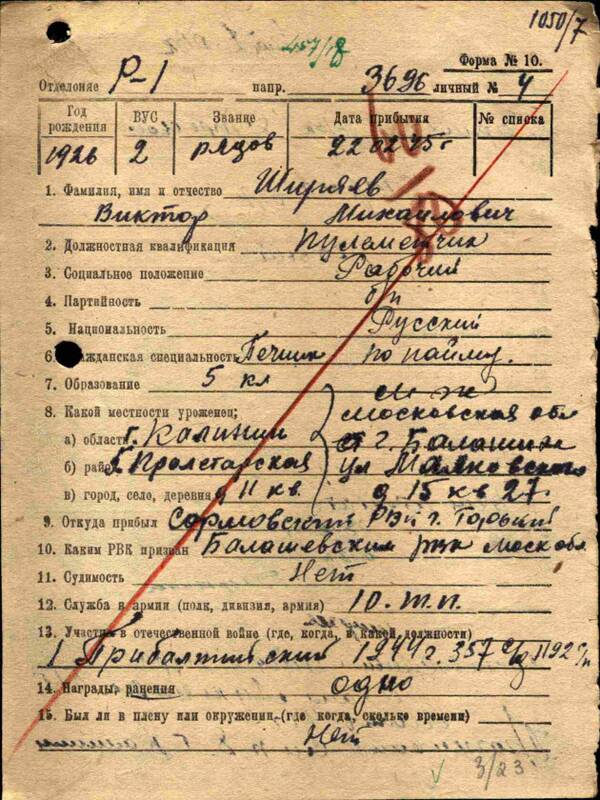 1050/7
457/18
Форма № 10.
Отделение Р-1 напр. 3696 личный № 4
Год рождения ВУС Звание Дата прибытия № списка
1926 2 рядов 22 02 45г
60/80
1. Фамилия, имя и отчество Ширяев
Виктор Михаилович
2. Должностная квалификация пулеметчик
3. Социальное положение Рабочий
4. Партийность б/п
5. Национальность Русский
6. Гражданская специальность Печник по найму.
7. Образование 5 кл
8. Какой местности уроженец; Московская обл
а) область г. Калинин г. Балашиха
б) район Пролетарская ул Маяковского
в) город, село, деревня д 11 кв. д 15 кв 27.
9. Откуда прибыл Сормовский РВК г. Горький
10. Каким РВК призван Балашевским рвк моск обл.
11. Судимость Нет
12. Служба в армии (полк, дивизия, армия) 10. т.п.
13. Участие в отечественной войне (где, когда, и какой должности)
1 Прибалтийский 1944 г. 357 с/д 1192 с/п
14. Награды, ранения одно
15. Был ли в плену или окружении (где когда, сколько времени)
Нет
3/23